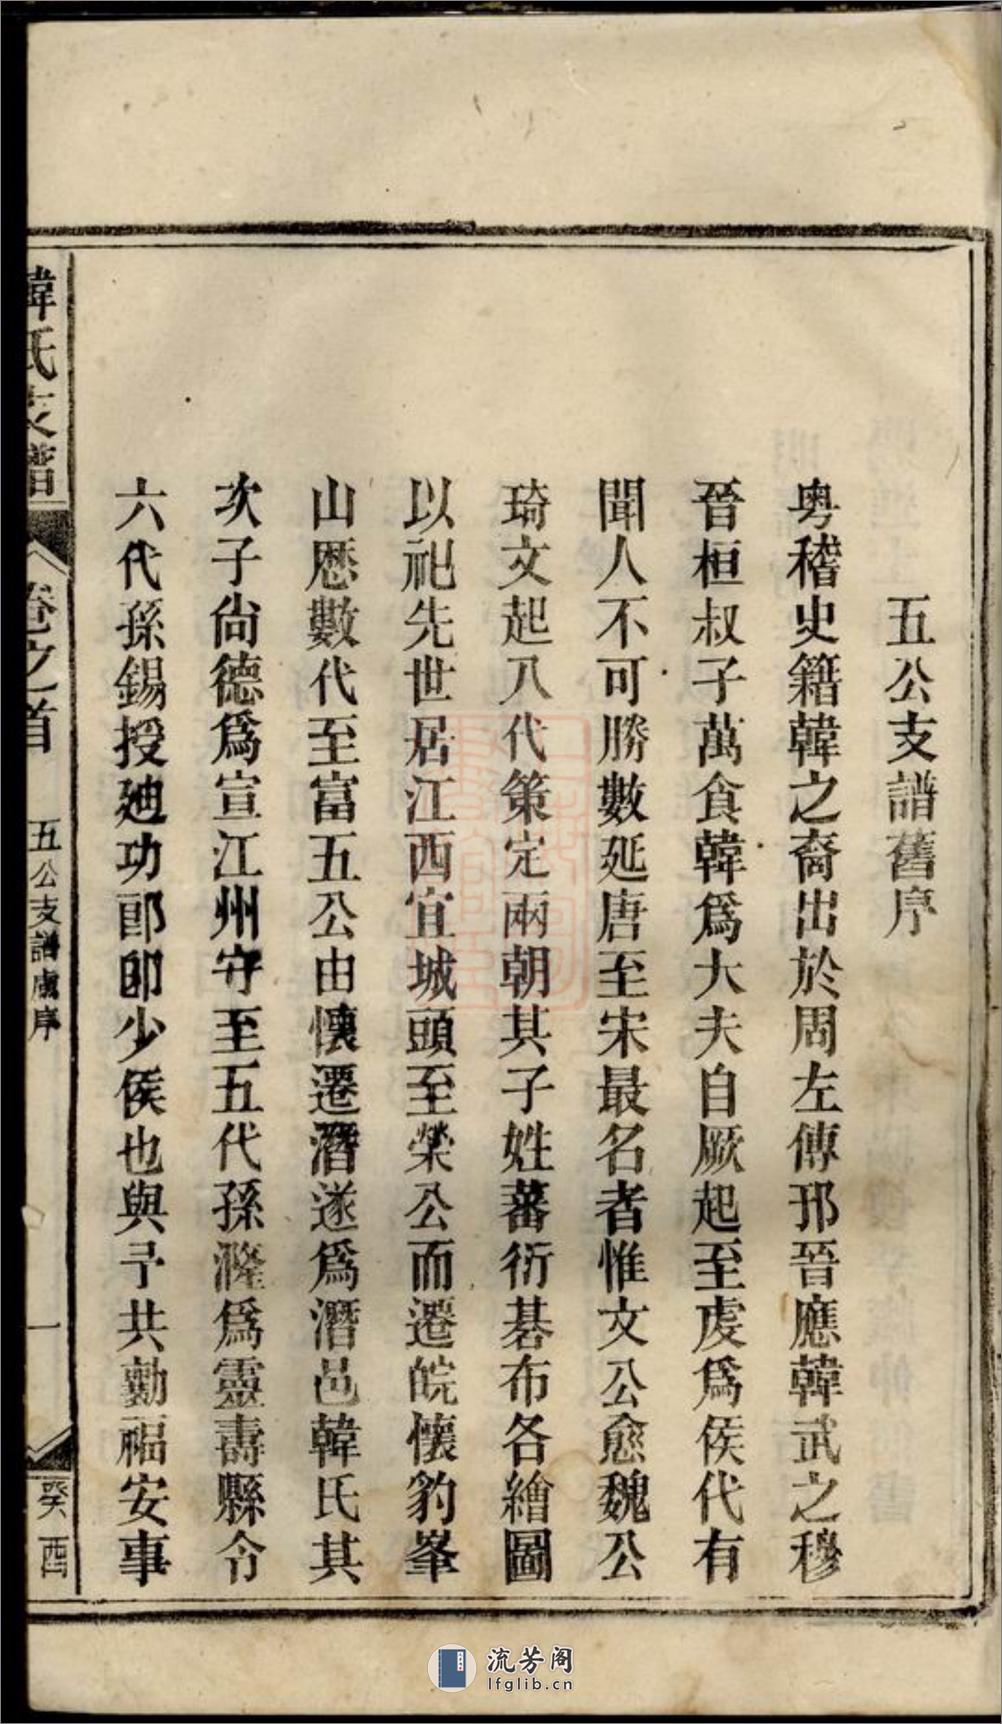 五公支譜舊序
粤稽史籍韓之裔出於周左傳邘晉應韓武之穆
晉桓叔子萬食韓爲大夫自厥起至虔爲侯代有
聞人不可勝數延唐至宋最名者惟文公愈魏公
琦文起八代策定兩朝其子姓蕃衍碁布各繪圖
以祀先世居江西宜城頭至榮公而遷皖懷豹峯
山歷數代至富五公由懷遷潛遂爲潛邑韓氏其
次子尙德爲宣江州守至五代孫隆爲靈壽縣令
六代孫錫授廸功郎卽少侯也與予共勷福安事
韓氏支譜
卷之首
五公支譜序
一
癸酉
流芳阁
lfglib.cn